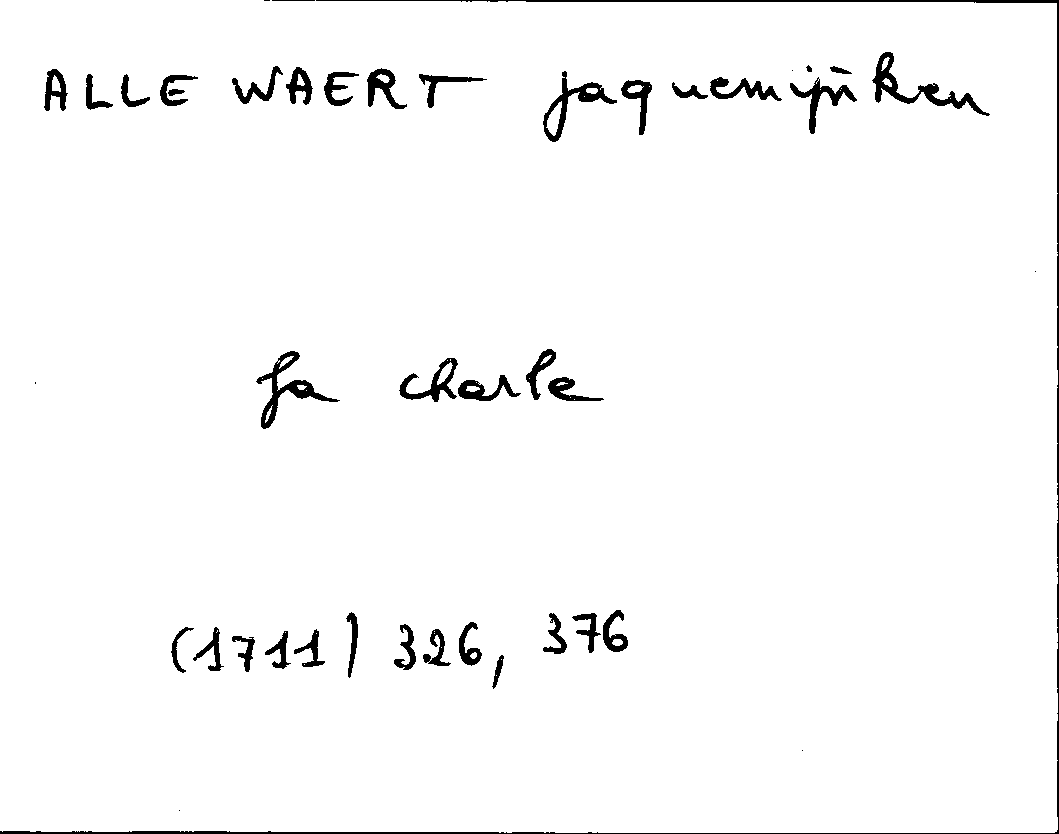 ALLEWAERT jaquemijnken
fa charle
(1711) 326, 376